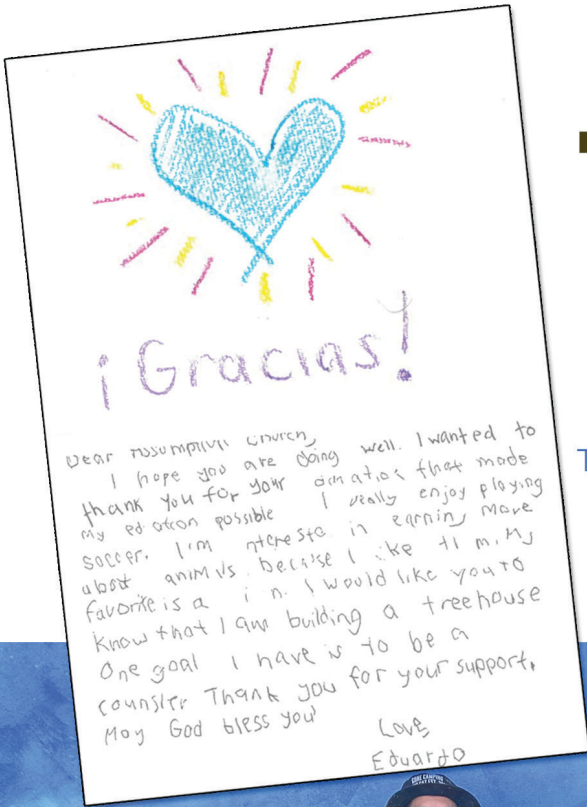 ¡Gracias!
Dear Assumption Church,
I hope you are doing well. I wanted to
thank you for your donation that made
my ed ation possible I really enjoy playing
soccer. I'm nterest in earning more
about animals because I like t m. My
favorite is a I would like you to
know that I am building a treehouse
One goal I have is to be a
Thank you for your support.
May God bless you!
Love,
Eduardo
T
GONE CAMPING